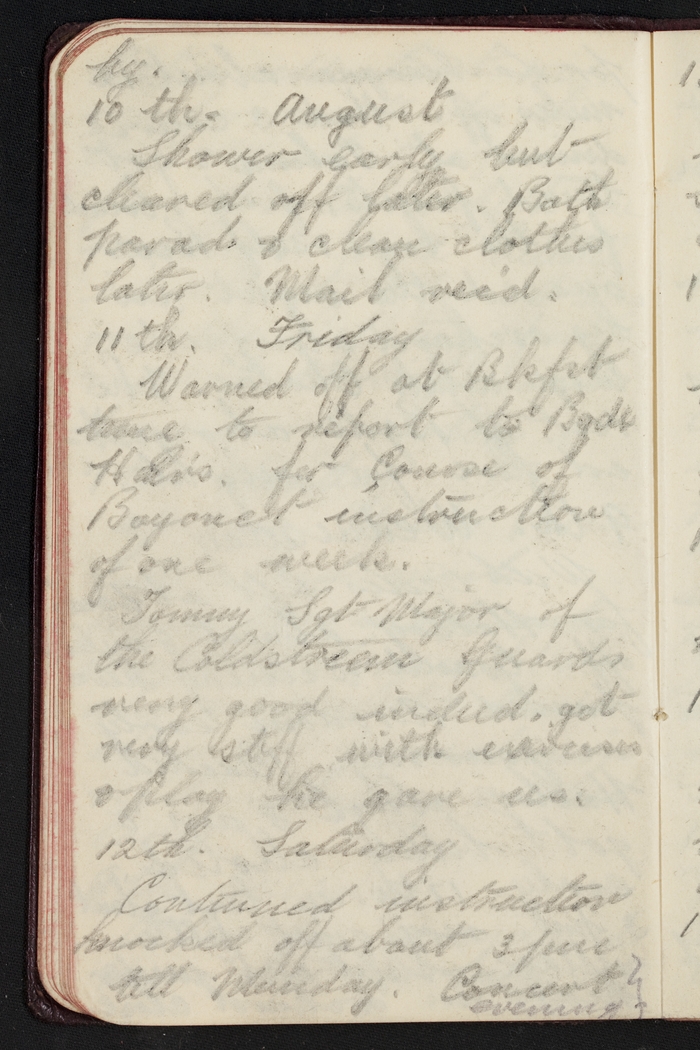 by.
10th. August
Shower early but
cleared off later. Bath
parade & clean clothes
later. Mail rec'd.
11th. Friday
Warned off at Bkfst
time to report to Bgde
Hdrs. for Course of
Bayonet instruction
of one week.
Tommy Sgt Major of
the Coldstream Guards
very good indeed. got
very stiff with exercises
& play he gave us.
12th. Saturday
Continued instruction
knocked off about 3 pm
till Monday. Concert
evening